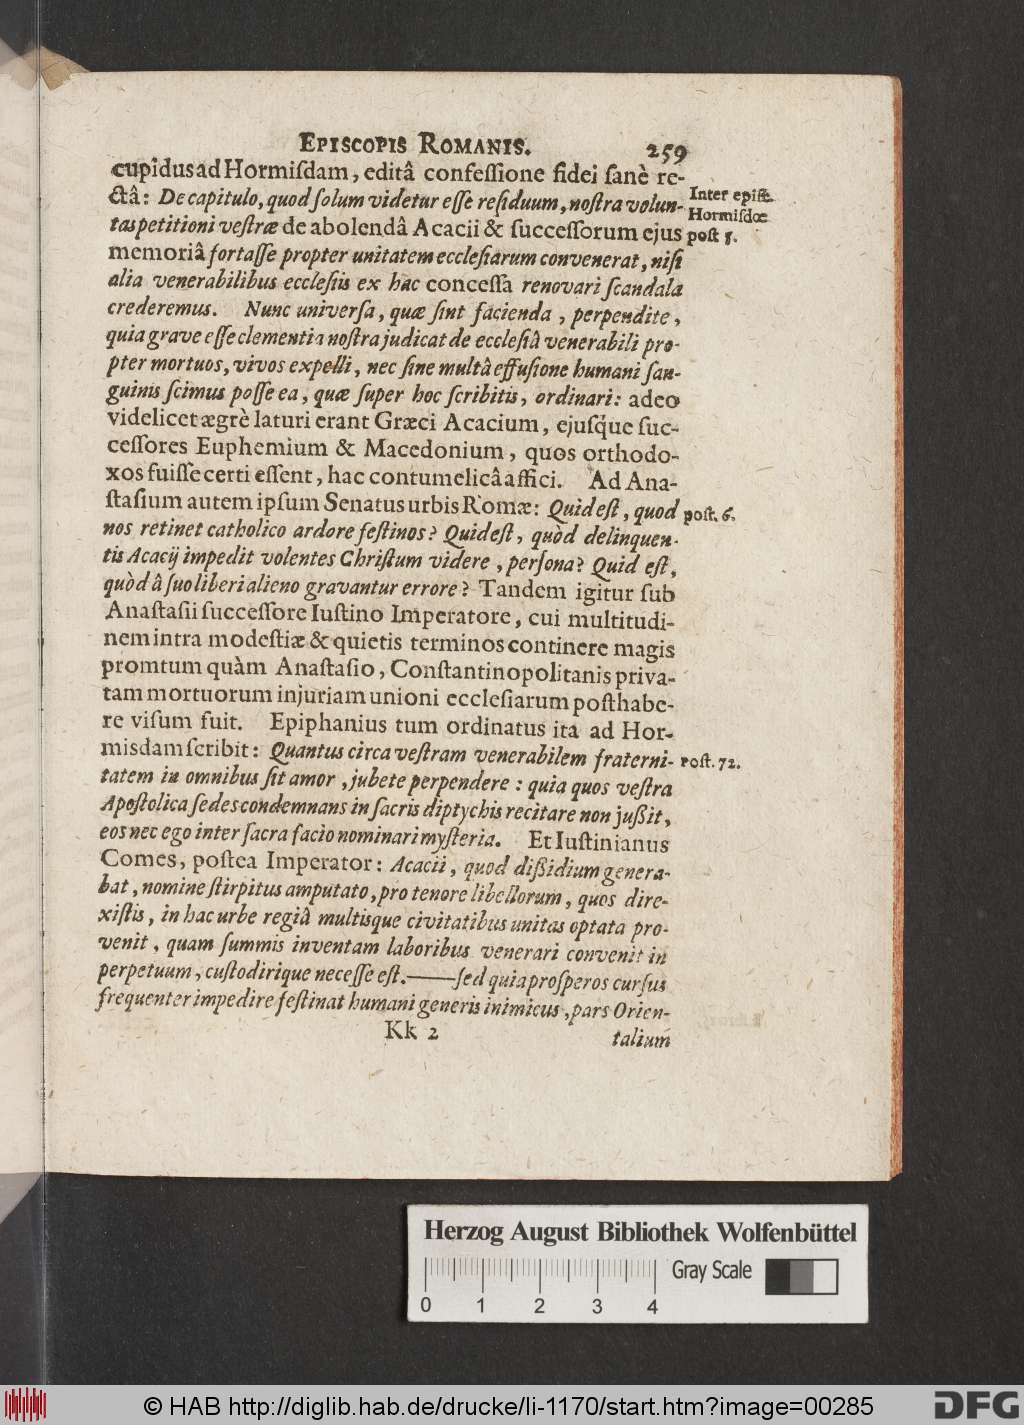 EPISCOPIS ROMANIS. 259
cupidus ad Hormiſdam, editâ confeſſione fidei ſanè re-
ctâ: De capitulo, quod ſolum videtur eſſe reſiduum, noſtra volun-
tas petitioni veſtræ de abolendâ Acacii & ſucceſſorum ejus
memoriâ fortaſſe propter unitatem eccleſiarum convenerat, niſi
alia venerabilibus eccleſiis ex hac conceſſa renovari ſcandala
crederemus. Nunc univerſa, quæ ſint facienda, perpendite,
quia grave eſſe clementia noſtra judicat de eccleſiâ venerabili pro-
pter mortuos, vivos expelli, nec ſine multâ effuſione humani ſan-
guinis ſcimus poſſe ea, quæ ſuper hoc ſcribitis, ordinari: adeo
videlicet ægrè laturi erant Græci Acacium, ejuſq́ue ſuc-
ceſſores Euphemium & Macedonium, quos orthodo-
xos fuiſſe certi eſſent, hac contumeliâ affici. Ad Ana-
ſtaſium autem ipſum Senatus urbis Romæ: Quid eſt, quod
nos retinet catholico ardore feſtinos? Quid eſt, quòd delinquen-
tis Acacij impedit volentes Chriſtum videre, perſona? Quid eſt,
quòd â ſuo liberi alieno gravantur errore? Tandem igitur ſub
Anaſtaſii ſucceſſore Iuſtino Imperatore, cui multitudi-
nem intra modeſtiæ & quietis terminos continere magis
promtum quàm Anaſtaſio, Conſtantinopolitanis priva-
tam mortuorum injuriam unioni eccleſiarum poſthabe-
re viſum fuit. Epiphanius tum ordinatus ita ad Hor-
misdam ſcribit: Quantus circa veſtram venerabilem fraterni-
tatem in omnibus ſit amor, jubete perpendere: quia quos veſtra
Apoſtolica ſedes condemnans in ſacris diptychis recitare non juſſit,
eos nec ego inter ſacra facio nominari myſteria. Et Iuſtinianus
Comes, poſtea Imperator: Acacii, quod diſſidium genera-
bat, nomine ſtirpitus amputato, pro tenore libellorum, quos dire-
xiſtis, in hac urbe regiâ multisque civitatibus unitas optata pro-
venit, quam ſummis inventam laboribus venerari convenit in
perpetuum, cuſtodirique neceſſe eſt.——ſed quia proſperos curſus
frequenter impedire feſtinat humani generis inimicus, pars Orien-
Kk 2 talium
Inter epiſt.
Hormiſdœ
poſt 5.
poſt. 6.
poſt. 72.
Herzog August Bibliothek Wolfenbüttel
Gray Scale
0 1 2 3 4
© HAB http://diglib.hab.de/drucke/li-1170/start.htm?image=00285
DFG